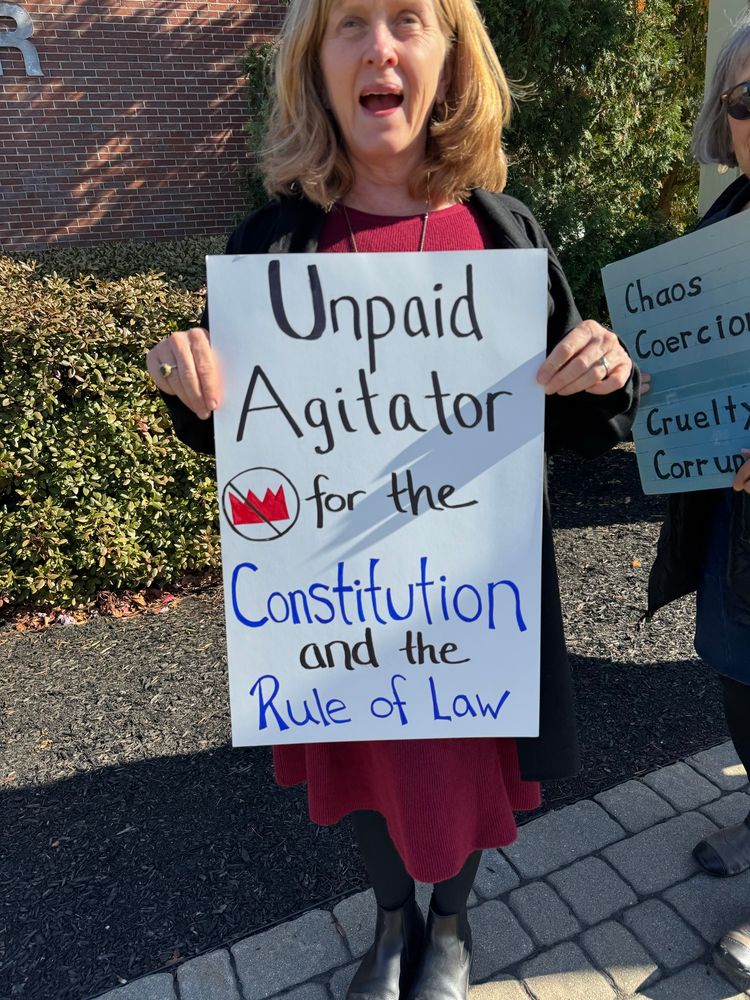 R
Unpaid
Agitator
for the
Constitution
and the
Rule of Law
Chaos
Coercion
Cruelty